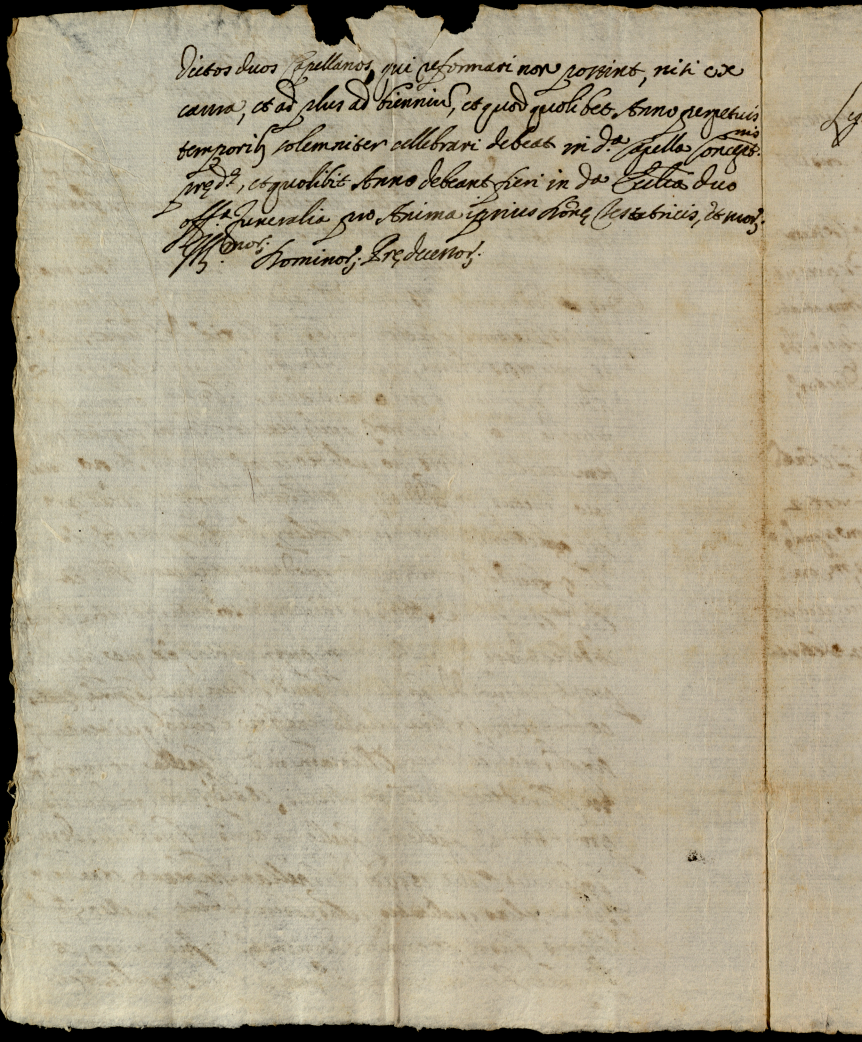 dictos duos Capellanos, qui reformari non possint, nisi ex
causa, et ad plus ad bienniũ, et quod quolibet Anno perpetuis
temporibꝫ solemniter cellebrari debeat in d.ª Capella Concept.nis
pręd.ª, et quolibit Anno debeant fieri in d.ª Ecclia duo
off.ª funeralia pro Anima ipsius Donę Testatricis, et
Dominoꝝ
Leg